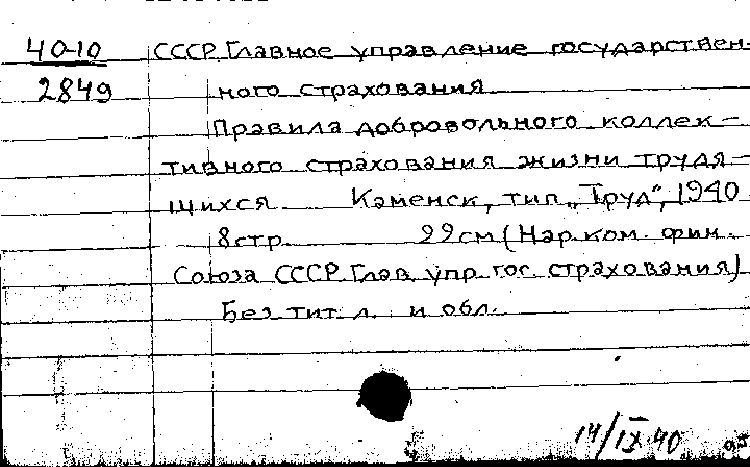 40-10
2849
СССР. Главное управление государствен-
ного страхования
Правила добровольного коллек-
тивного страхования жизни трудя-
щихся Каменск, тип. „Труд", 1940
8 стр. 22 см (Нар. ком. фин.
Союза ССР. Глав. упр. гос. страхования)
Без тит. л. и обл.
14/IX 40